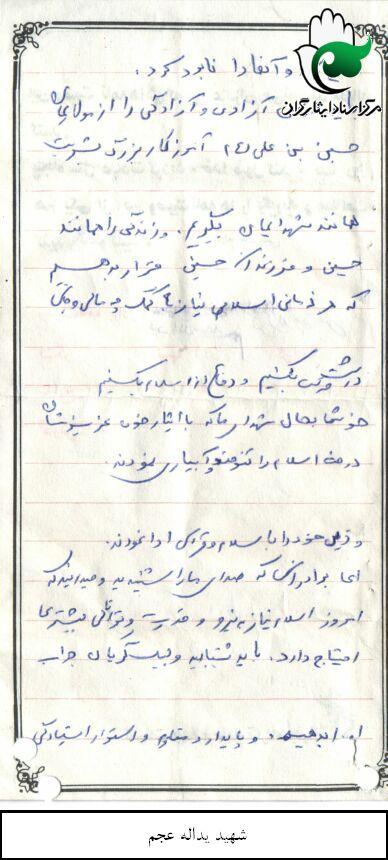 مرکز اسناد ایثارگران
و آنها را نابود کرد.
آزادی و آزادگی را از مولایمان
حسین بن علی (ع) آموزگار بزرگ بشریت
همانند شهدایمان بگیریم. و زندگی را همانند
حسین و فرزندان حسین قرار بدهیم
که هر زمانی اسلام نیاز به کمک چه مالی و جانی
شرکت بکنیم و دفاع از اسلام بکنیم
خوشا بحال شهدای ما که با ایثار خون عزیزشان
درخت اسلام را تنومند و آبیاری نمودند.
و قرض خود را با اسلام و قرآن ادا نمودند.
اما برادرانی که صدای ما را شنیدید و میدانید که
امروز اسلام نیاز به نیرو و قدرت و توانائی بیشتر ما
احتیاج دارد. باید بشتابید و لبیک گویان جواب
او را بدهید و پایدار و مقاوم و استوار ایستادگی
شهید یداله عجم